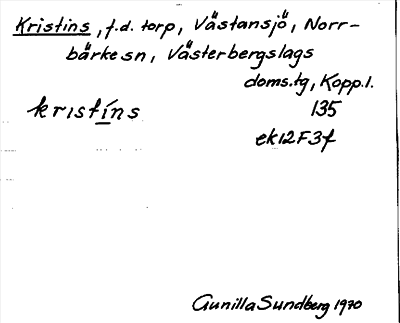 Kristins, f.d. torp, Västansjö, Norr-
bärke sn, Västerbergslags
doms.tg, Kopp.l.
kristíns
135
ek12F3f
Gunilla Sundberg 1970